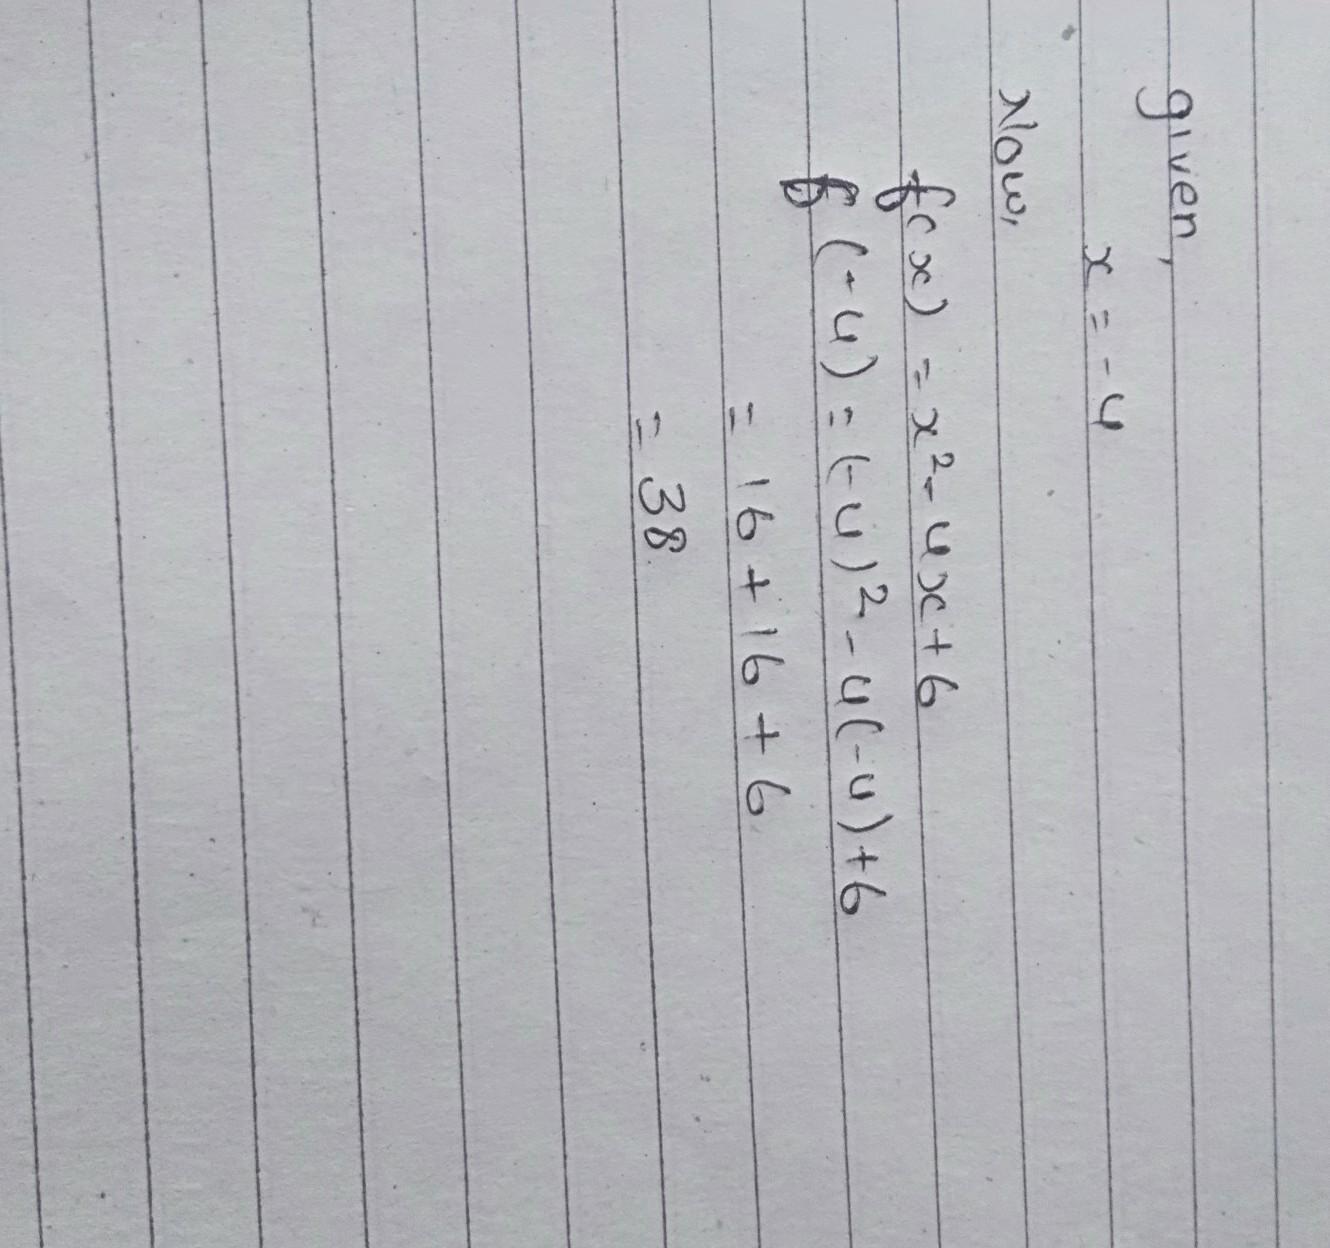 given,
x = -4
Now,
f(x) = x² - 4x + 6
f(-4) = (-4)² - 4(-4) + 6
= 16 + 16 + 6
= 38